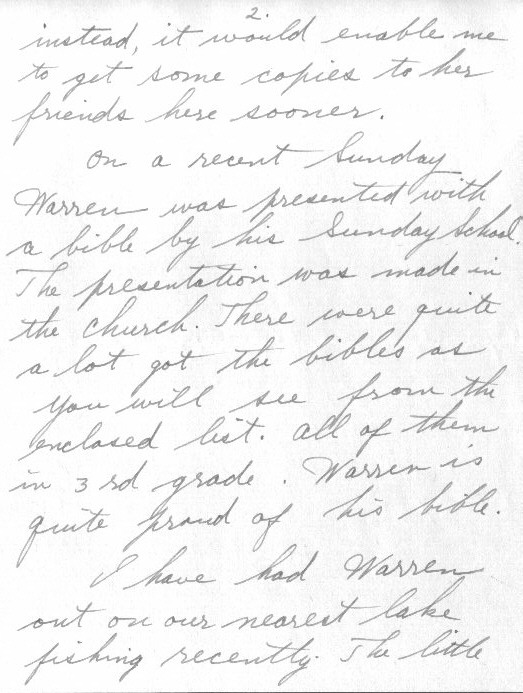 2.
instead, it would enable me
to get some copies to her
friends here sooner.
On a recent Sunday
Warren was presented with
a bible by his Sunday School.
The presentation was made in
the church. There were quite
a lot got the bibles as
you will see from the
enclosed list. All of them
in 3rd grade. Warren is
quite proud of his bible.
I have had Warren
out on our nearest lake
fishing recently. The little